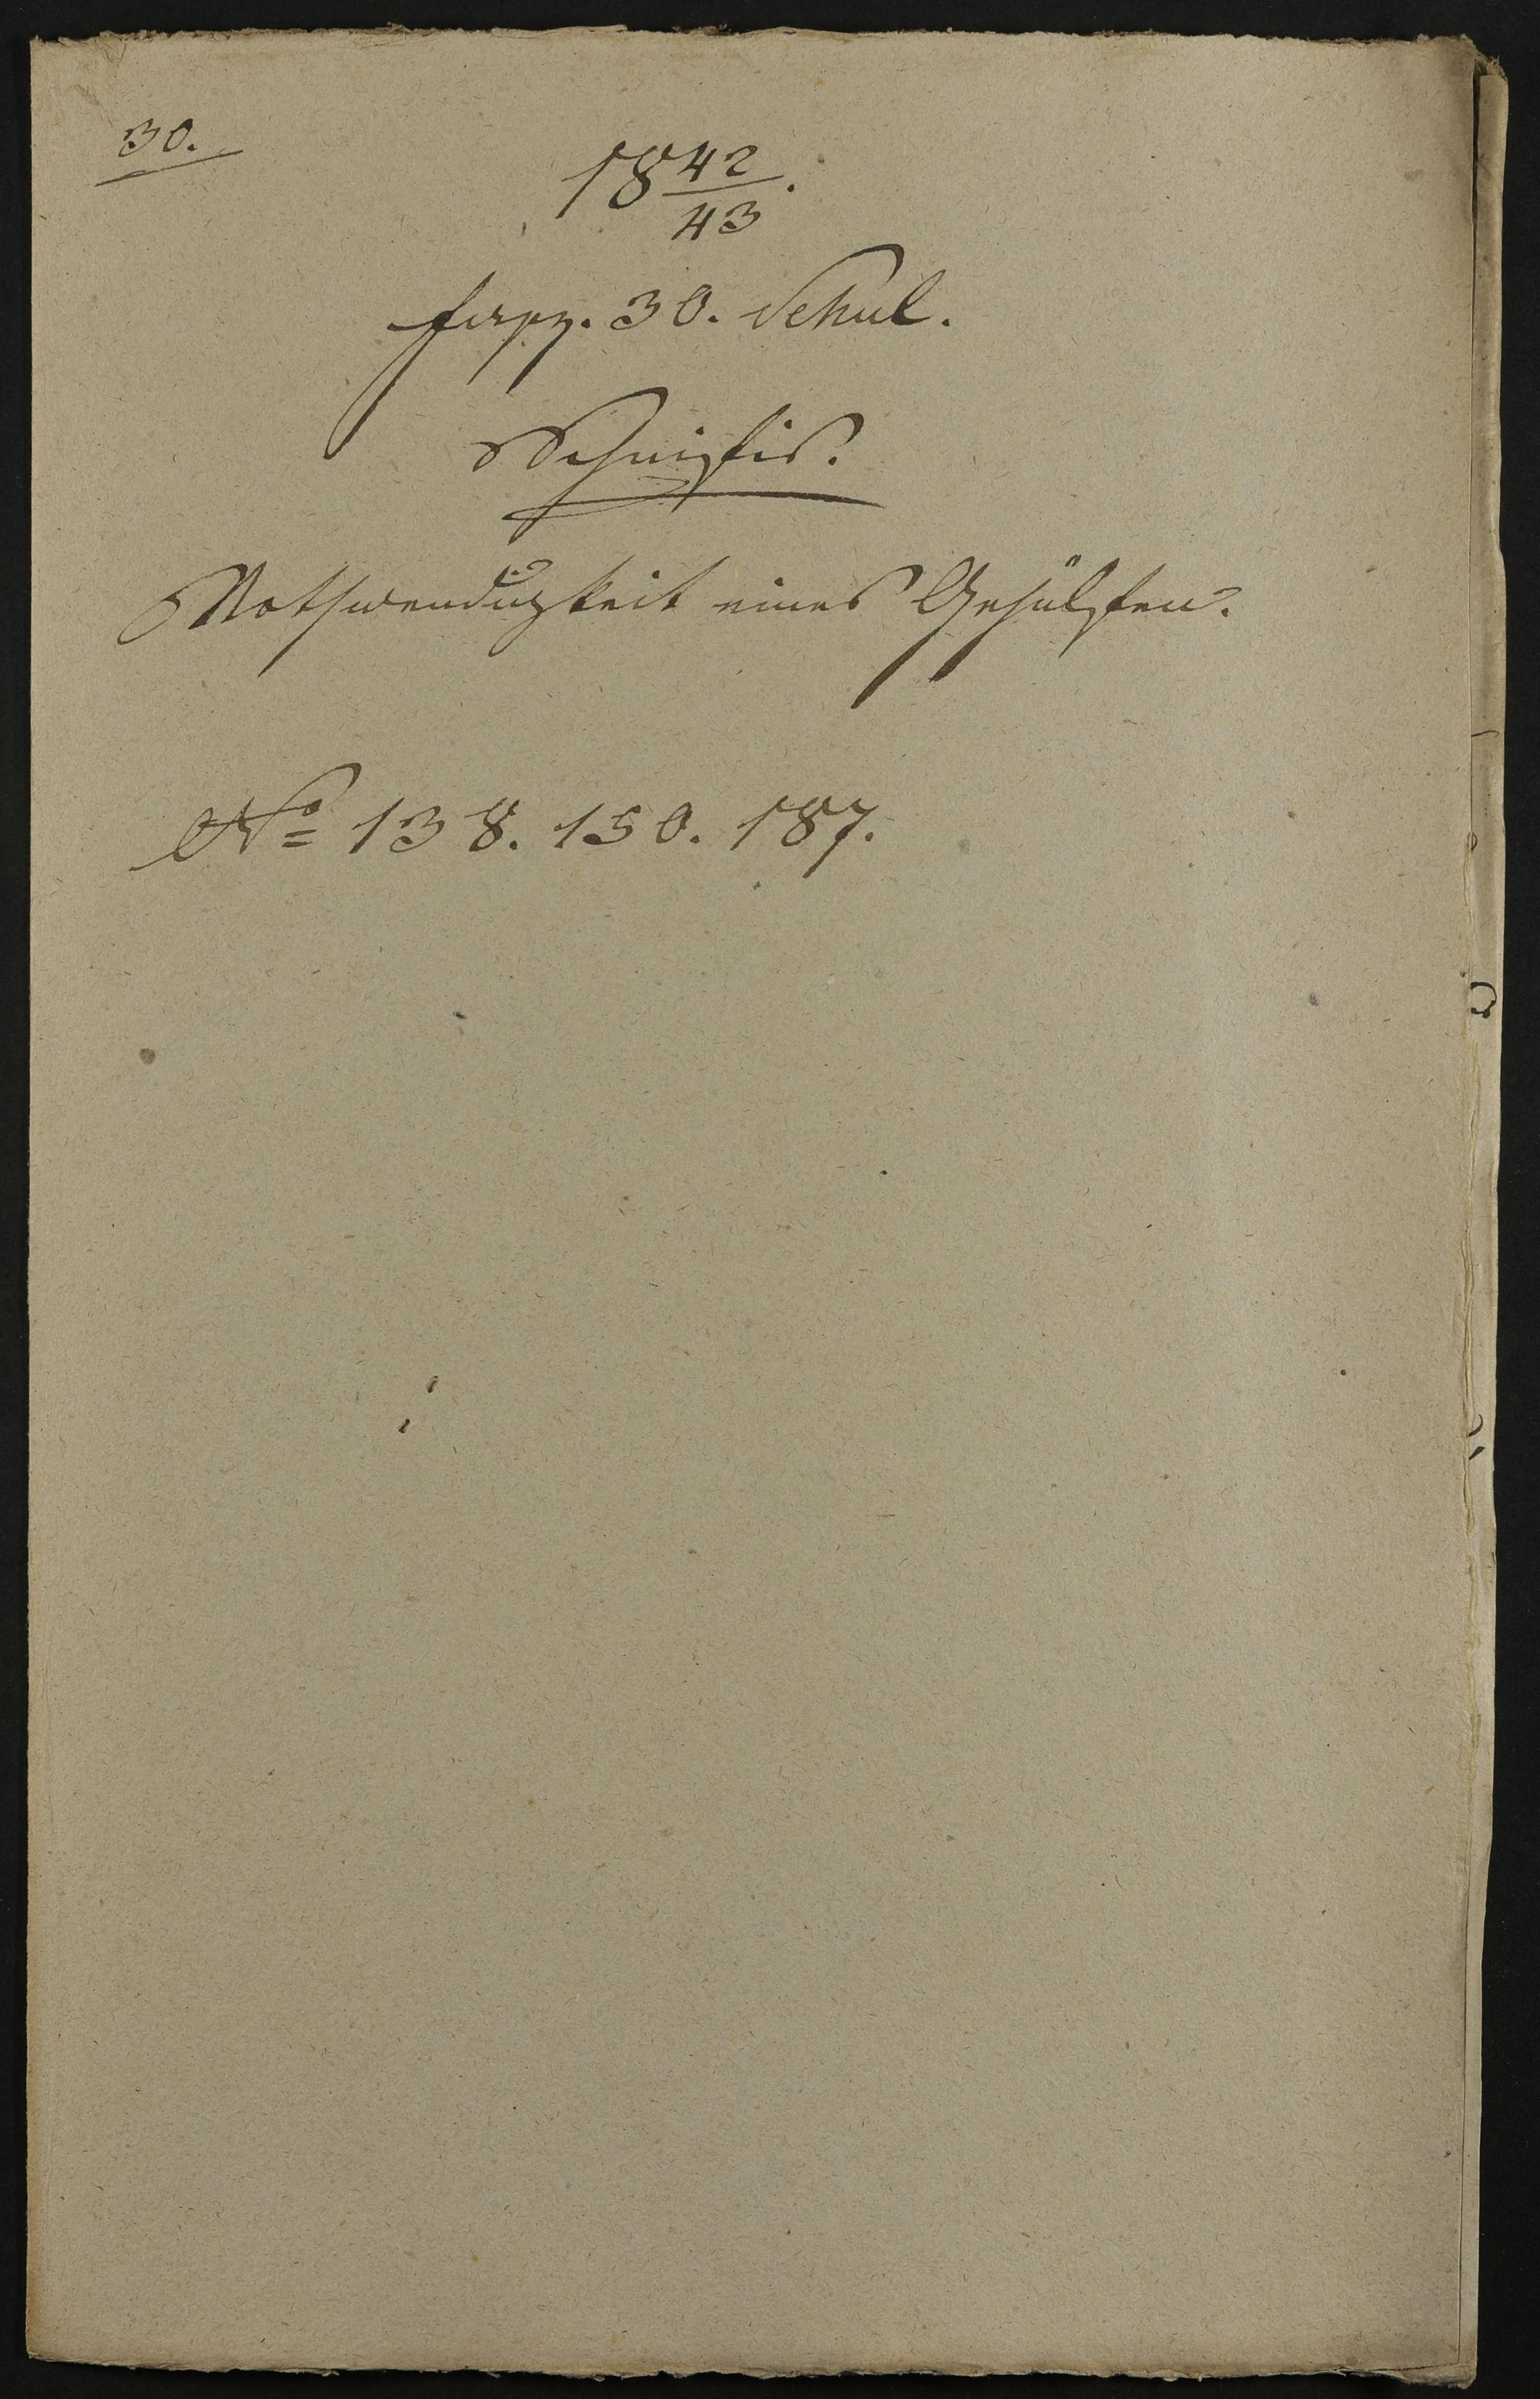 30.
18 42/43.
fasz. 30. Schul.
Schnifis.
Nothwendigkeit eines Gehülfen.
No 138. 150. 187.